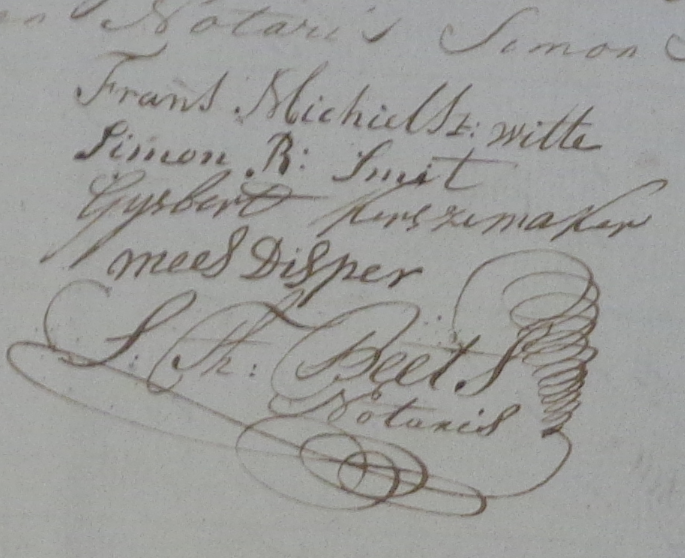 Notaris Simon
Frans Michielsz: witte
Simon R: Smit
Gysbert
mees Disper
S. Th: Beets
Notaris